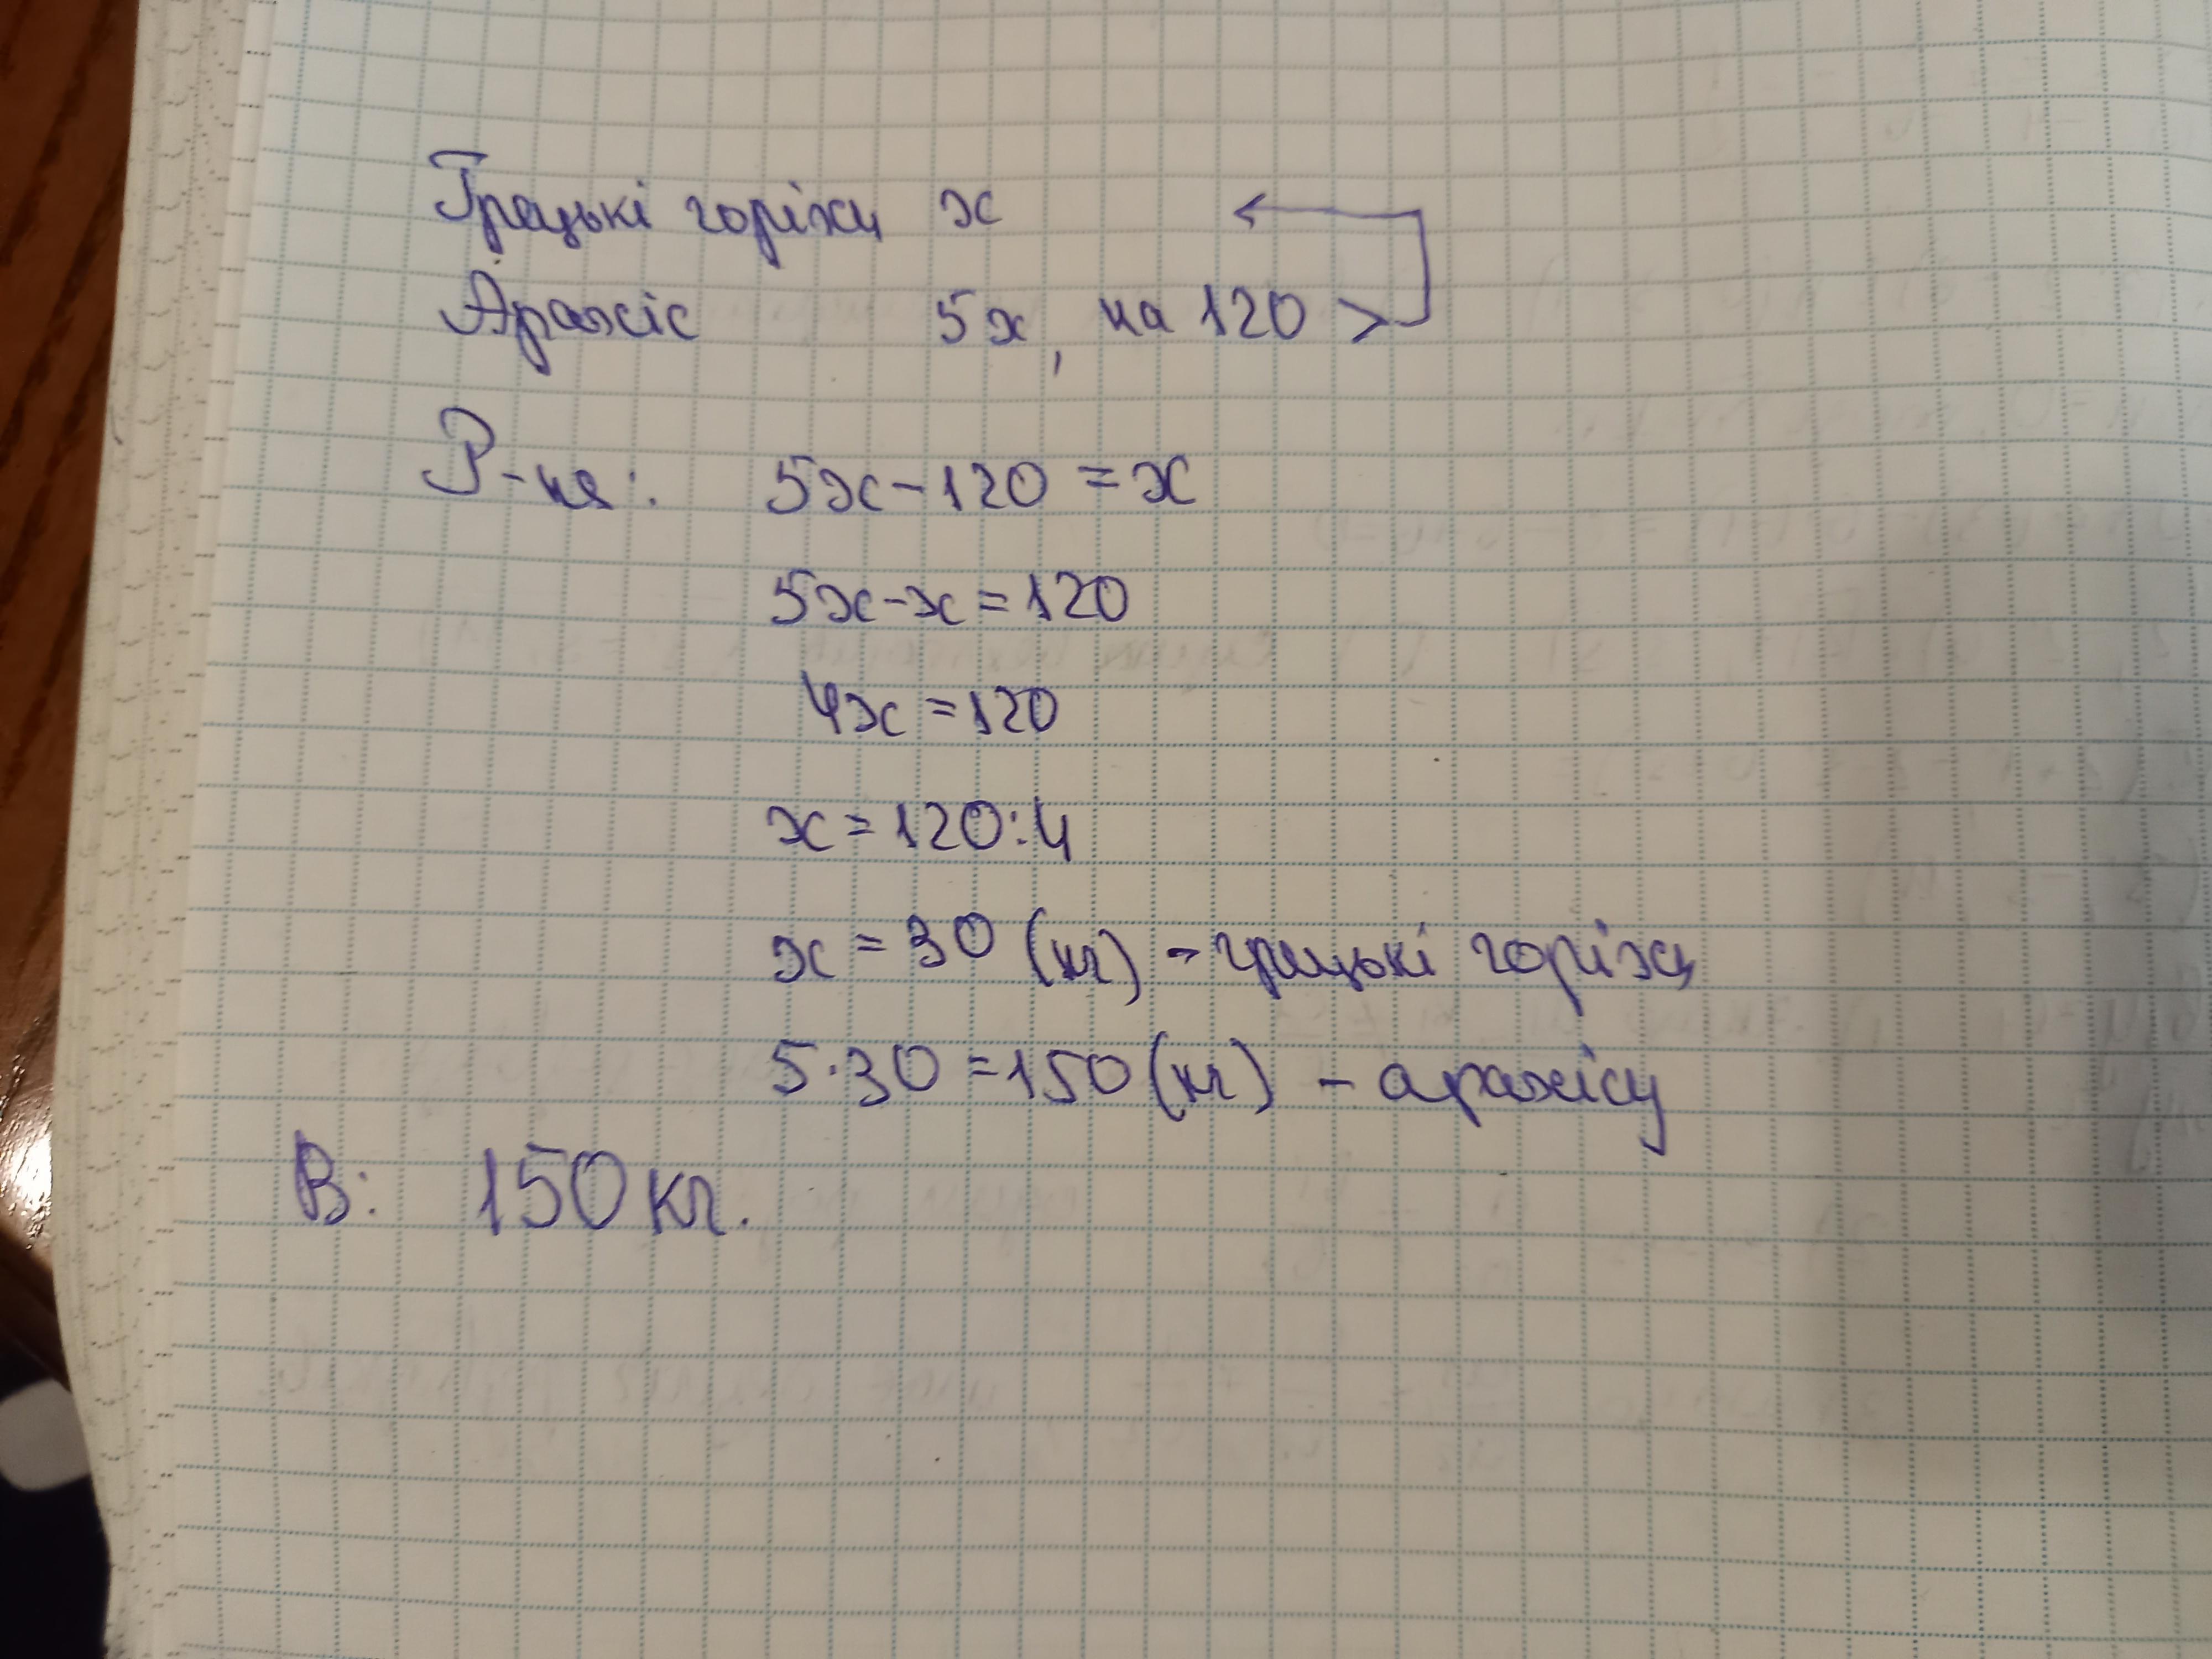 Грецькі горіхи x
Арахіс 5x, на 120 >
Р-ня: 5x-120=x
5x-x=120
4x=120
x=120:4
x=30 (кг) - грецькі горіхи
5·30=150 (кг) - арахісу
В: 150 кг.